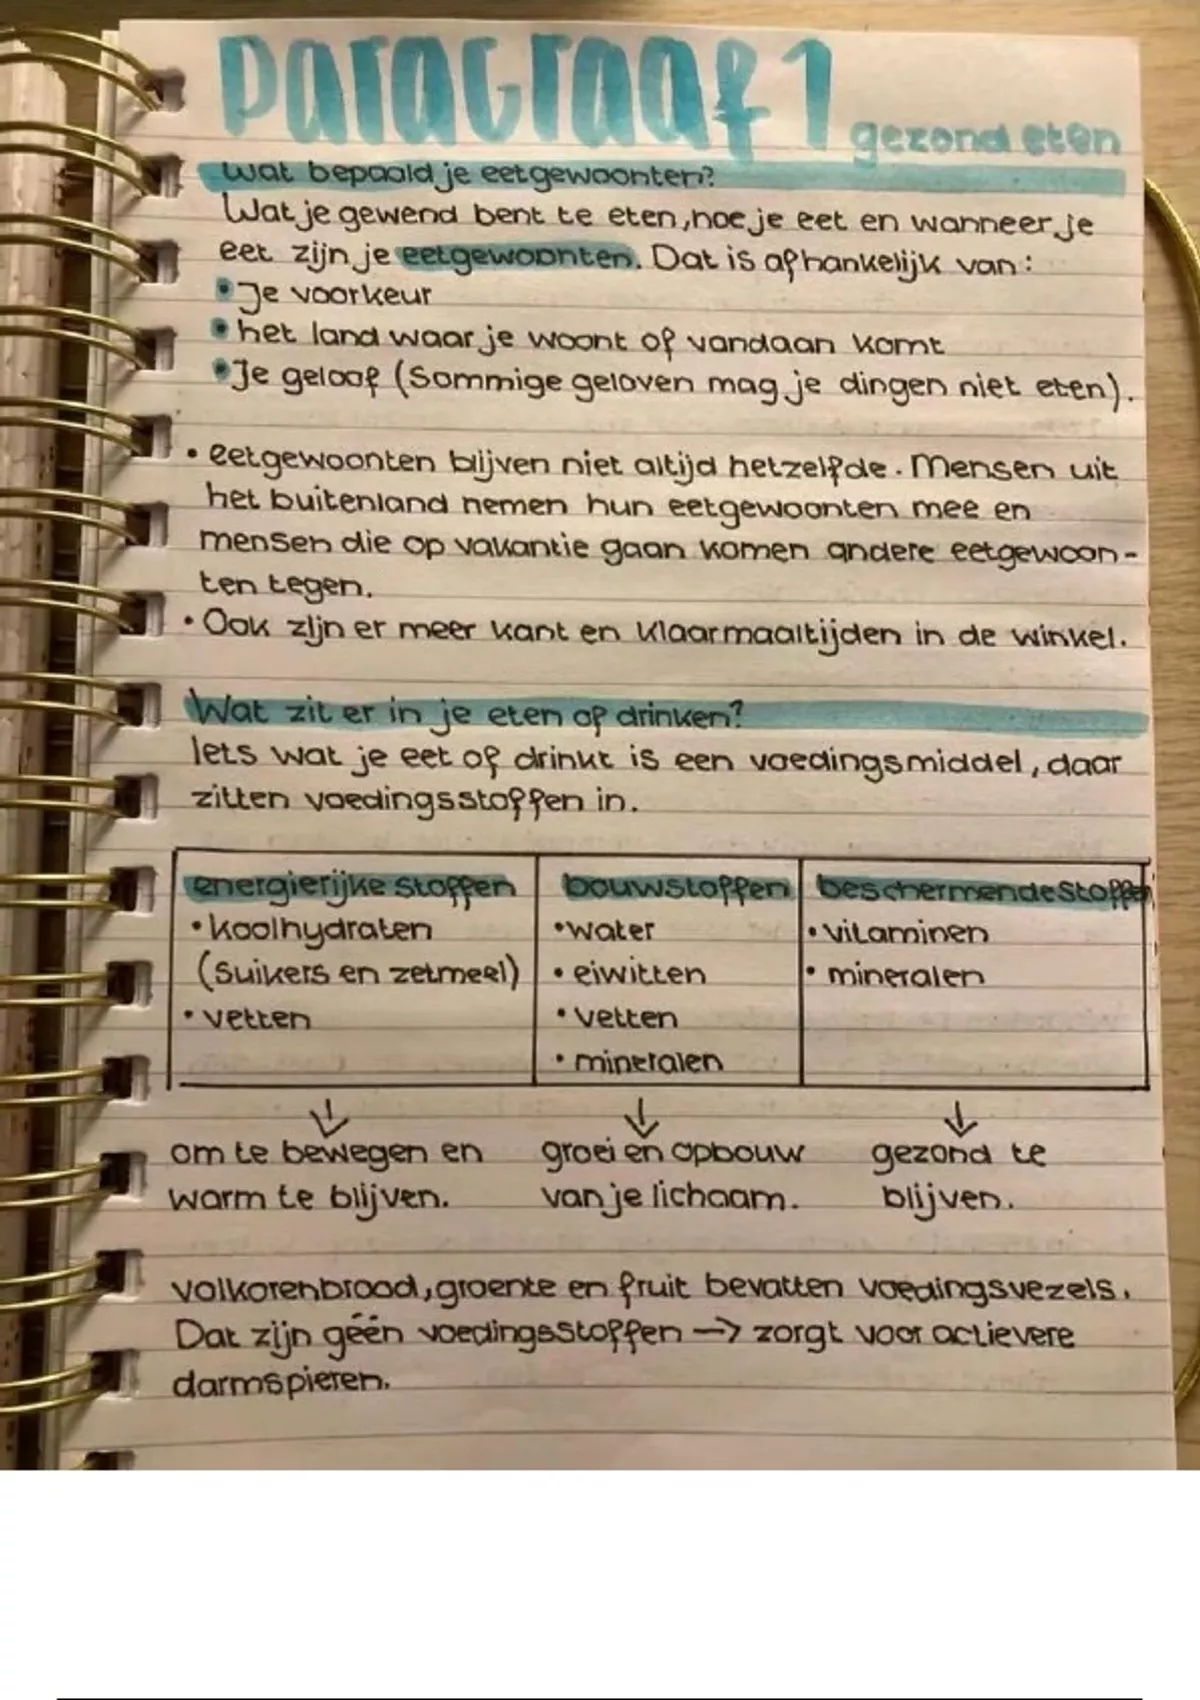 Paragraaf 1 gezond eten
Wat bepaald je eetgewoonten?
Wat je gewend bent te eten, hoe je eet en wanneer je
eet zijn je eetgewoonten. Dat is afhankelijk van:
• Je voorkeur
• het land waar je woont of vandaan komt
• Je geloof (Sommige geloven mag je dingen niet eten).
• eetgewoonten blijven niet altijd hetzelfde. Mensen uit
het buitenland nemen hun eetgewoonten mee en
mensen die op vakantie gaan komen andere eetgewoon-
ten tegen.
• Ook zijn er meer kant en klaarmaaltijden in de winkel.
Wat zit er in je eten of drinken?
Iets wat je eet of drinkt is een voedingsmiddel, daar
zitten voedingsstoffen in.
energierijke stoffen bouwstoffen beschermende stoffen
• koolhydraten • water • vitaminen
(suikers en zetmeel) • eiwitten • mineralen
• vetten • vetten
• mineralen
↓ ↓ ↓
om te bewegen en groei en opbouw gezond te
warm te blijven. van je lichaam. blijven.
volkorenbrood, groente en fruit bevatten voedingsvezels.
Dat zijn géén voedingsstoffen → zorgt voor actievere
darmspieren.